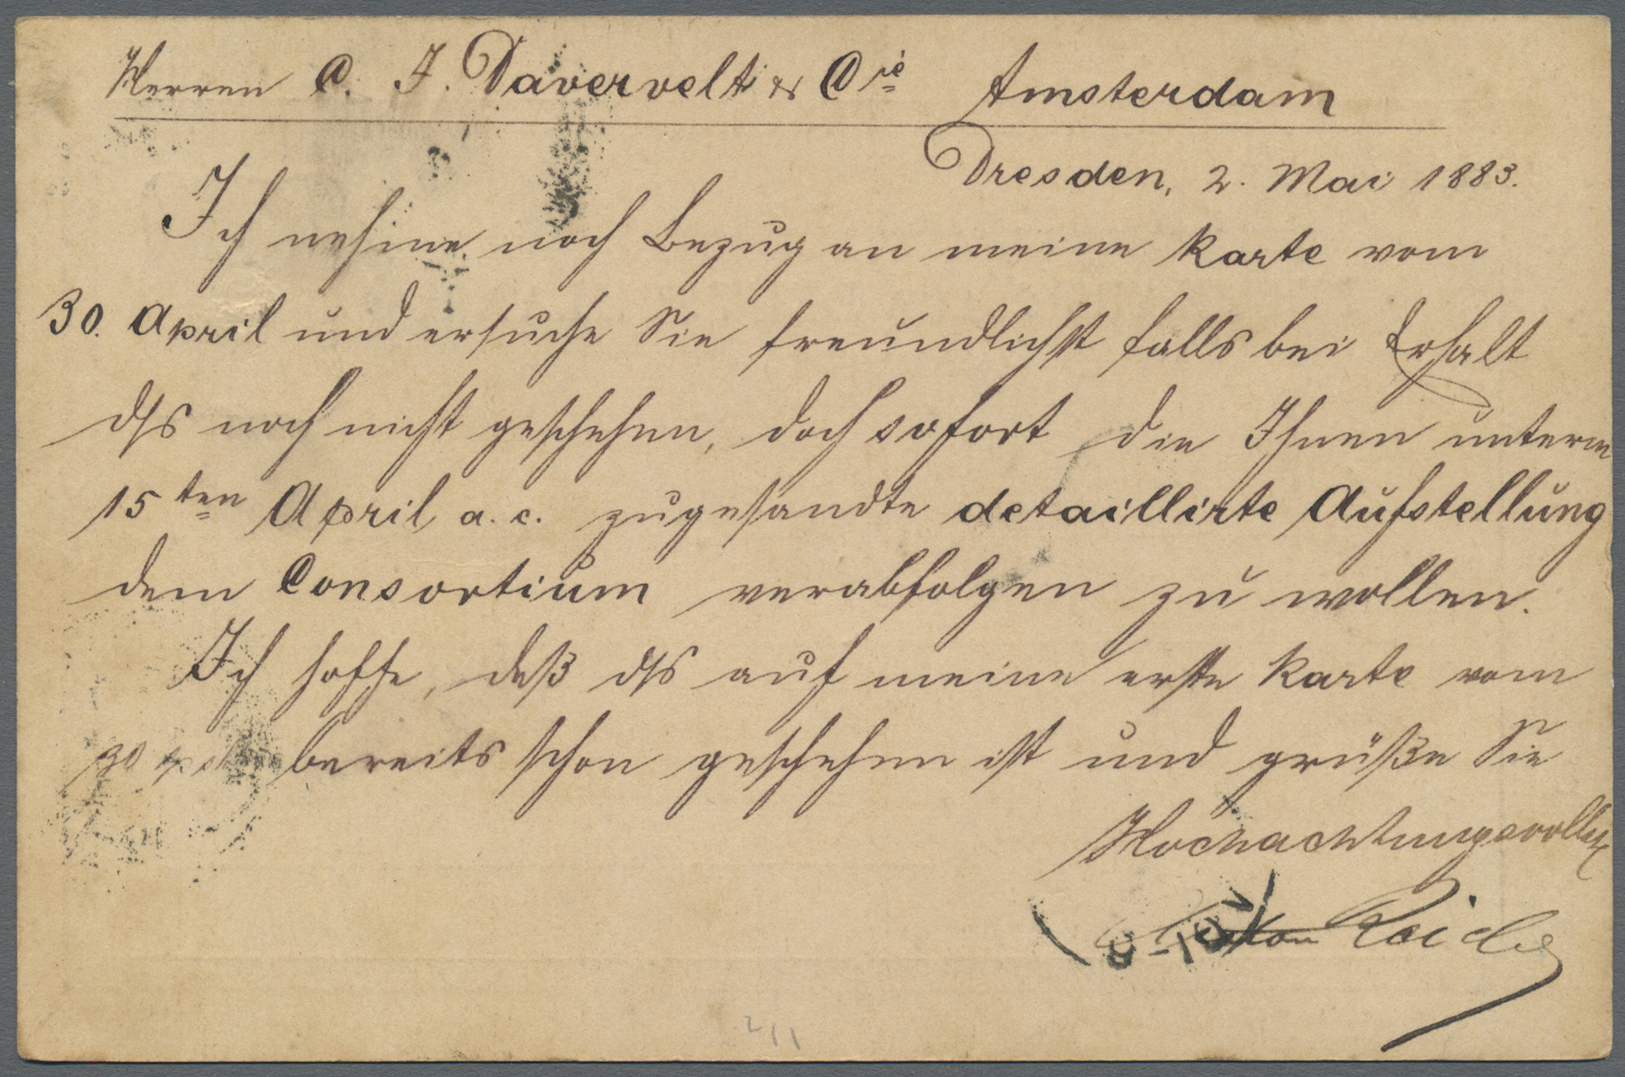 Herren C. F. Davervelt & Cie Amsterdam
Dresden, 2. Mai 1883.
Ich nehme noch Bezug an meine Karte vom
30. April und ersuche Sie freundlichst falls bei Erhalt
ds noch nicht geschehen, doch sofort die Ihnen unterm
15ten April a. c. zugesandte detaillirte Aufstellung
dem Consortium verabfolgen zu wollen.
Ich hoffe, daß ds auf meine erste Karte vom
30 April bereits schon geschehen ist und grüße Sie
Hochachtungsvollst
Anton Reiche
211